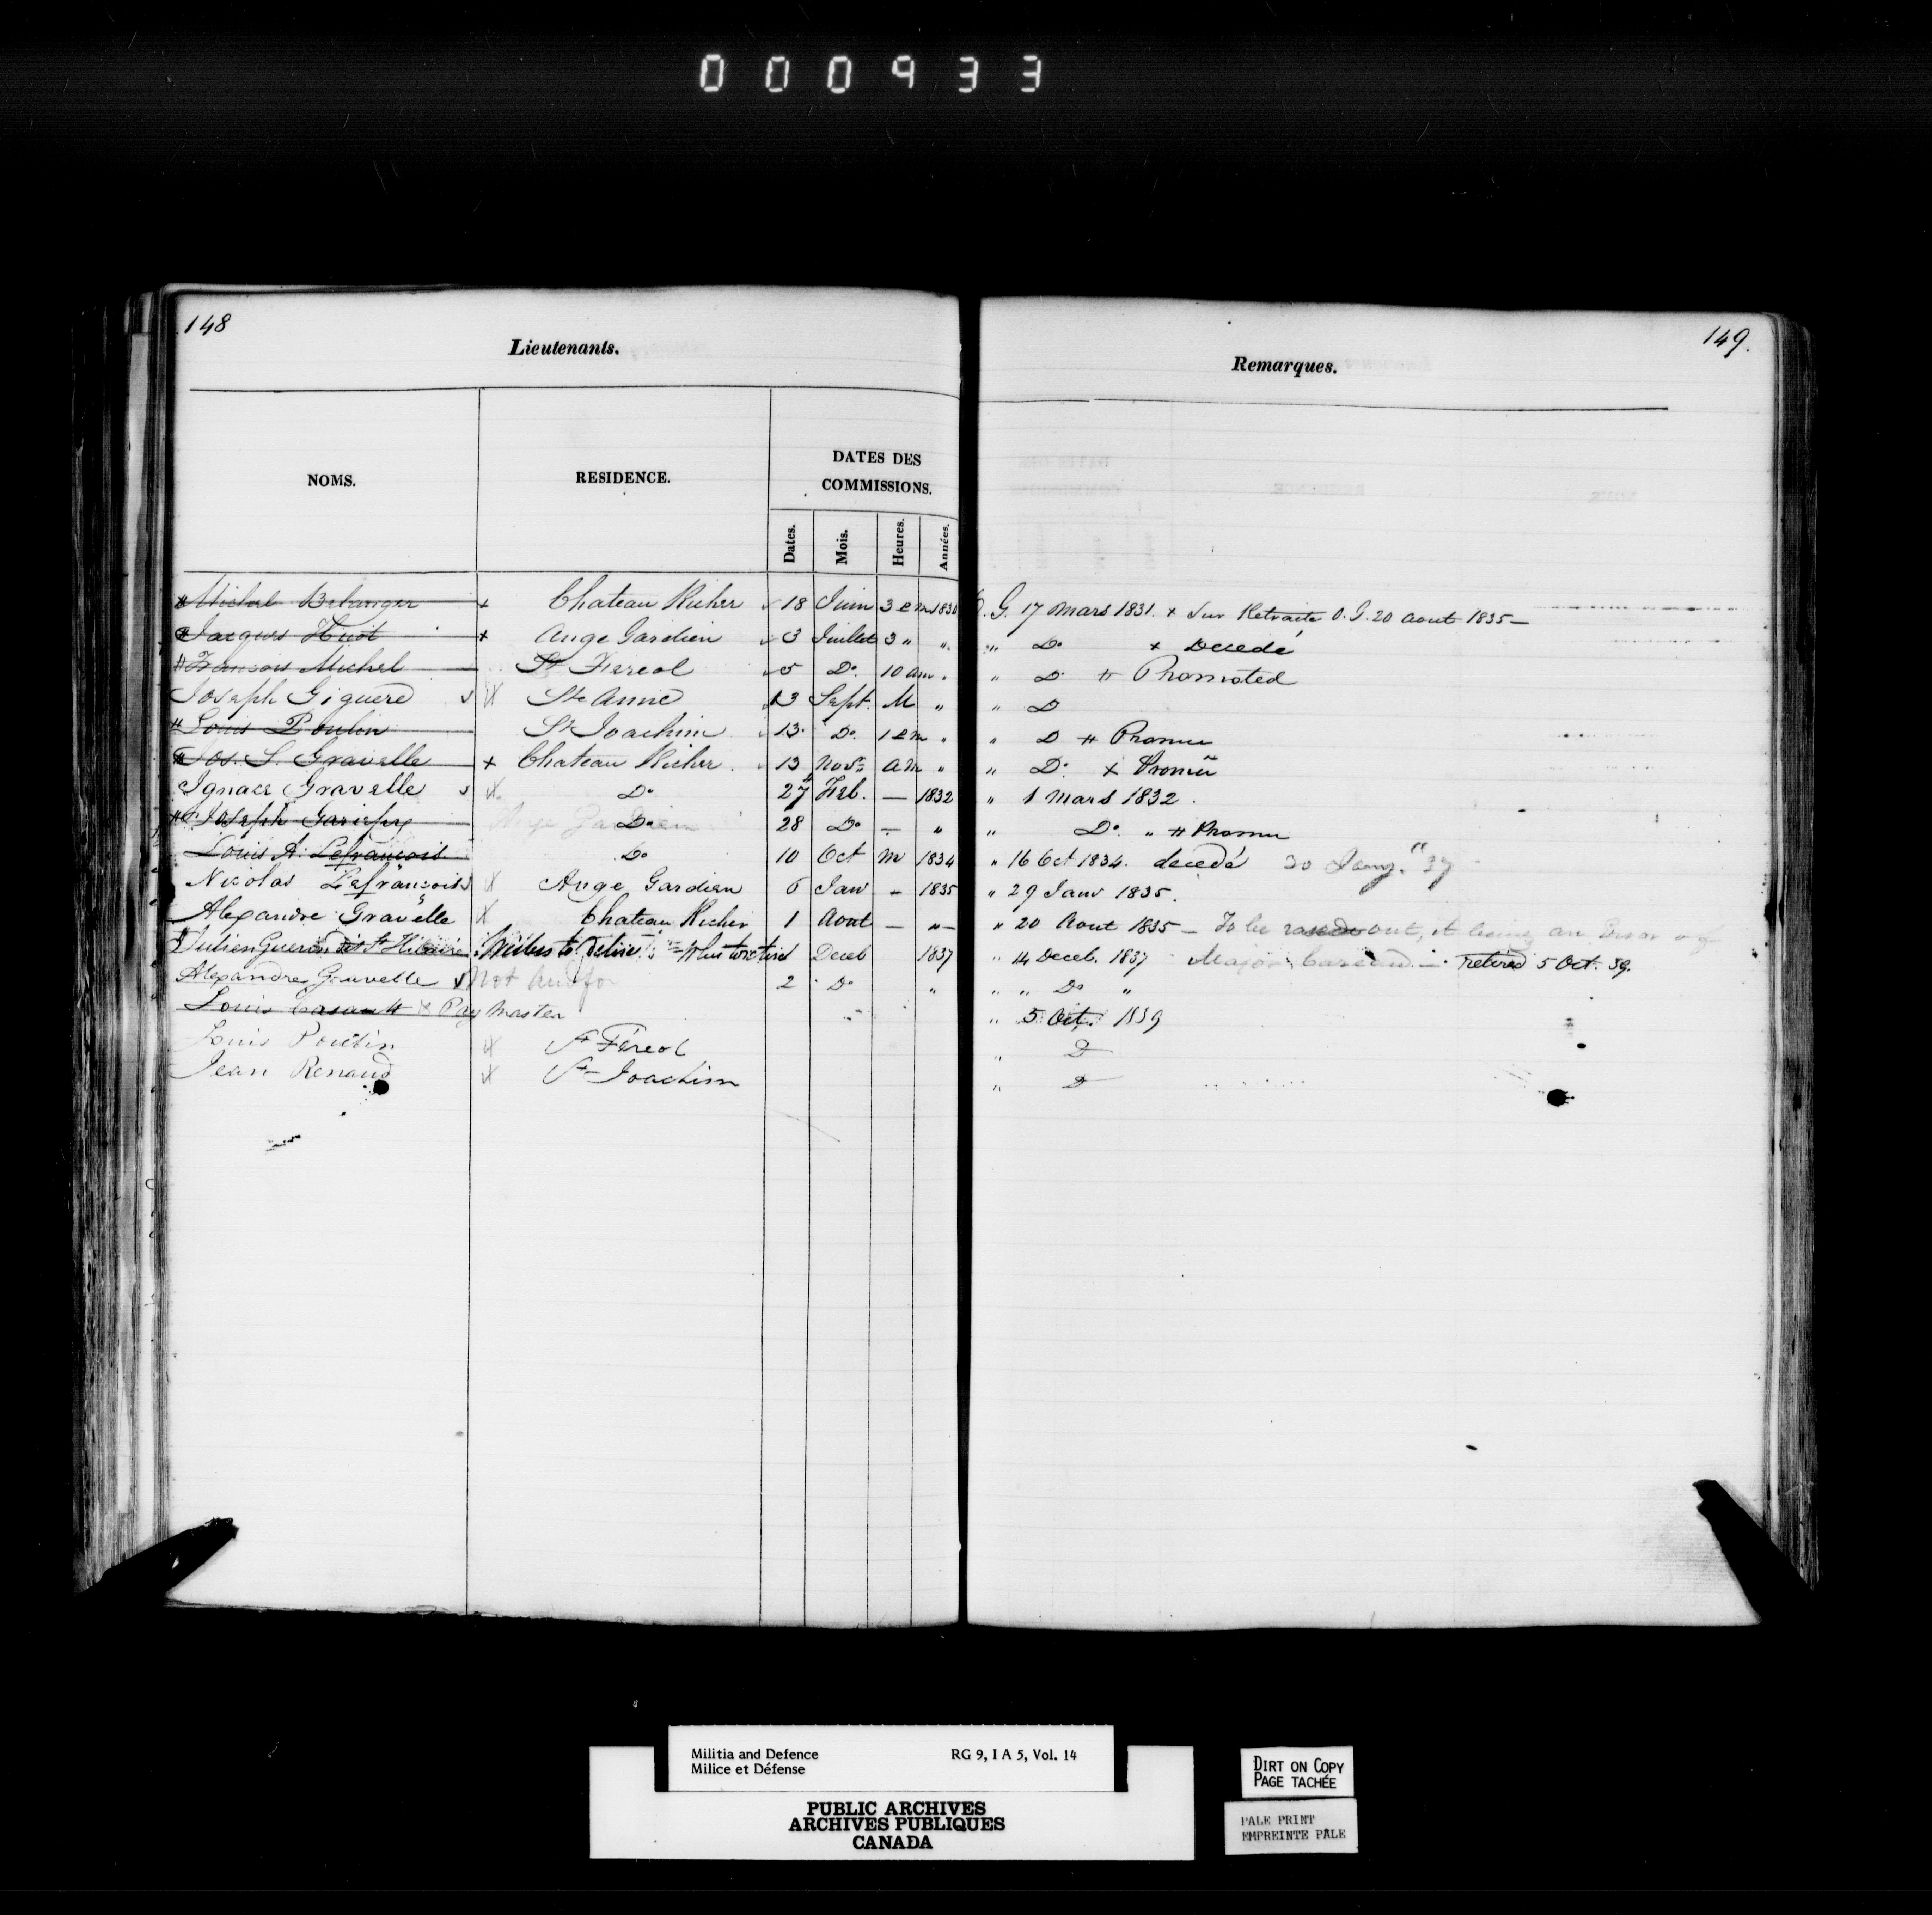 000933
148
Lieutenants.
149.
Remarques.
NOMS.
RESIDENCE.
DATES DES
COMMISSIONS.
Dates.
Mois.
Heures.
Années.
Michel Belanger + Chateau Richer 18 Juin 3 1830 O. G. 17 Mars 1831. + Sur Retraite O. G. 20 Aout 1835 —
Jacques Huot + Ange Gardien 3 Juillet 3 " " " Do + Decedé
François Michel St Fereol 5 Do. 10 am " " D. # Promoted
Joseph Giguere Ste Anne 13 Sept. M " " D
Louis Poulin St Joachim 13 Do. 1 " " D # Promu
Jos. S. Gravelle + Chateau Richer 13 Novr am " " Do. + Promu
Ignace Gravelle Do 27 Feb. — 1832 " 1 Mars 1832.
Joseph Gariepy Ange Gardien Do 28 Do — " " Do. " # Promu
Louis A. Lefrancois Do 10 Oct M 1834 " 16 Oct 1834. decedé 20 37
Nicolas Lefrançois Ange Gardien 6 Janv - 1835 " 29 Janv 1835.
Alexandre Gravelle Chateau Richer 1 Aout — " — " 20 Aout 1835 — To be out, it being an Error of
Julien Guerin dit St Hilaire Wishes to Retire Deceb 1837 " 14 Deceb. 1837 Major retired 5 Oct. 39.
Alexandre Gravelle Not 2 Do " " " Do "
Louis Casault Pay Master " 5 Oct. 1839
Louis Poulin St Fereol " D
Jean Renaud St Joachim " D
Militia and Defence RG 9, I A 5, Vol. 14
Milice et Défense
PUBLIC ARCHIVES
ARCHIVES PUBLIQUES
CANADA
DIRT ON COPY
PAGE TACHÉE
PALE PRINT
EMPREINTE PALE